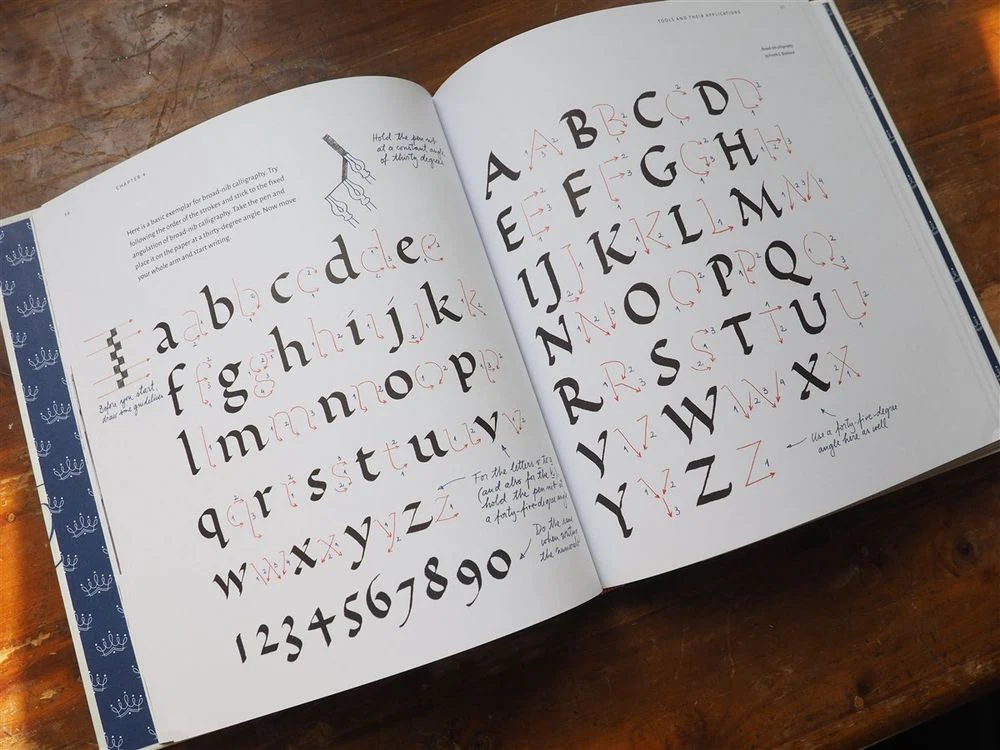 CHAPTER 4
Here is a basic exemplar for broad-nib calligraphy. Try
following the order of the strokes and stick to the fixed
angulation of broad-nib calligraphy. Take the pen and
place it on the paper at a thirty-degree angle. Now move
your whole arm and start writing.
Hold the pen nib
at a constant angle
of thirty degrees
a a b b c c d d e e
f f g g h h i i j j k k
Before you start,
draw some guidelines
l l m m n n o o p p
q q r r s s t t u u v v
w w x x y y z z
For the letters v to z
(and also for the
hold the pen nib at
a forty-five-degree angle
1 2 3 4 5 6 7 8 9 0
Do the same
when writing
the numerals
TOOLS AND THEIR APPLICATIONS
Broad-nib calligraphy
A A B B C C D D
E E F F G G H H
I J J K K L L M M
N N O O P P Q Q
R R S S T T U U
V V W W X X
Y Y Z Z
Use a forty-five-degree
angle here as well